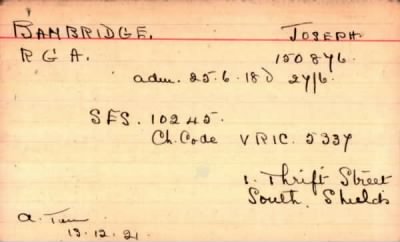 BAMBRIDGE. JOSEPH
R G A. 150876.
adm. 25.6.18 D 27/6.
SFS. 10245.
Ch. Code VRIC. 5337
1. Thrift Street
South. Shields
13.12.21